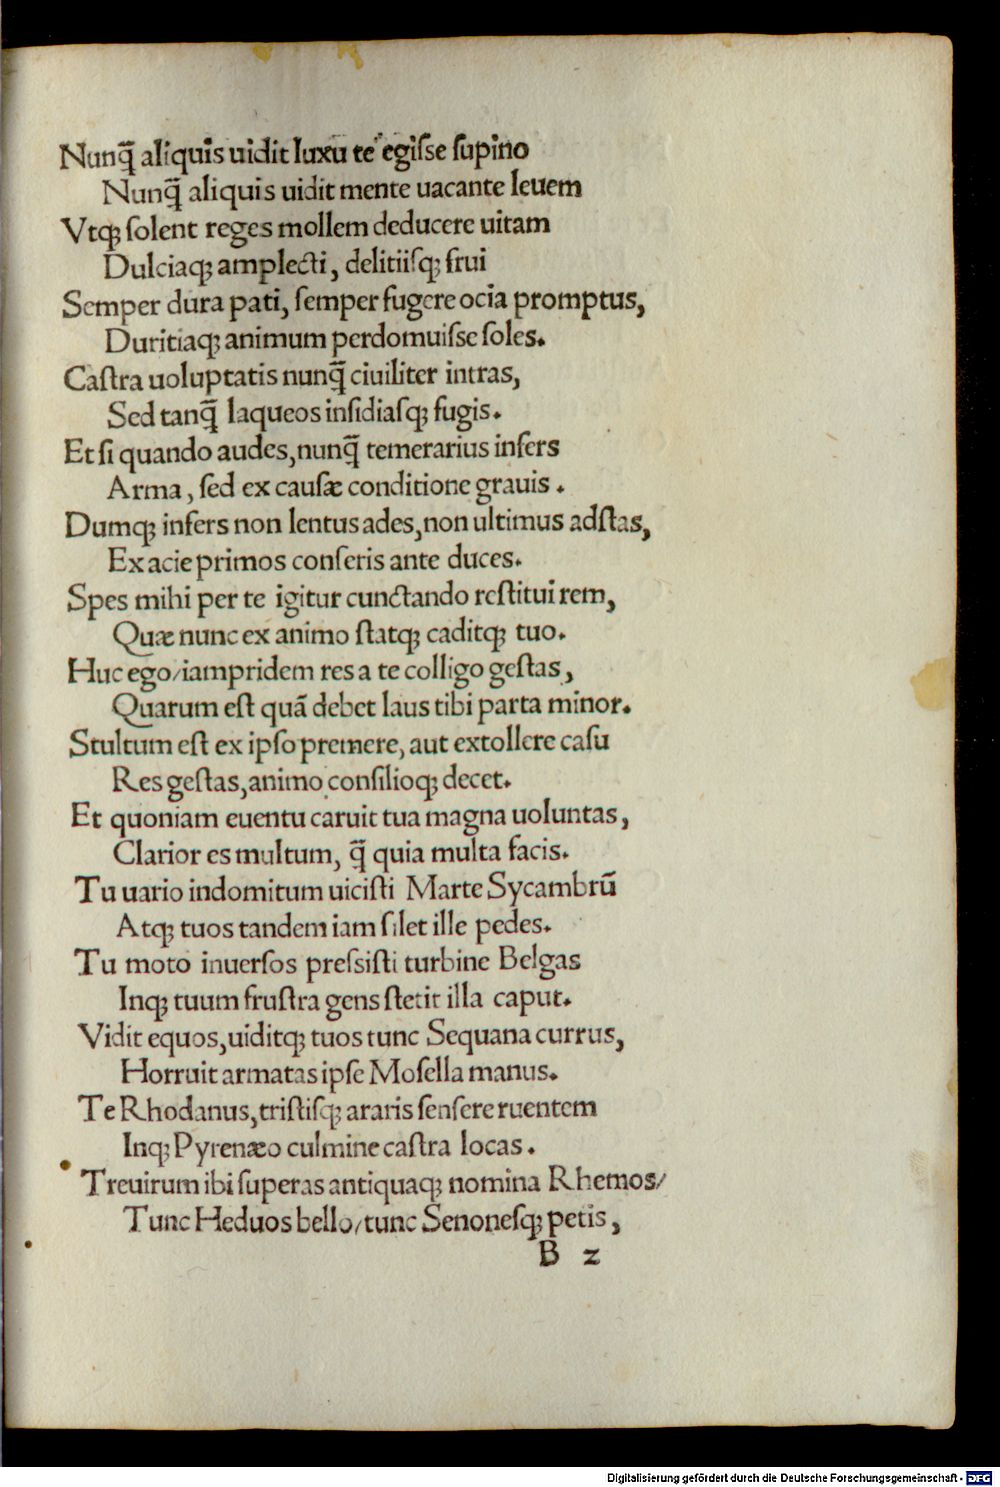 Nunq̃ aliquis uidit luxu te egiſſe ſupino
Nunq̃ aliquis uidit mente uacante leuem
Vtqꝫ ſolent reges mollem deducere uitam
Dulciaqꝫ amplecti, delitiiſqꝫ frui
Semper dura pati, ſemper fugere ocia promptus,
Duritiaqꝫ animum perdomuiſſe ſoles.
Caſtra uoluptatis nunq̃ ciuiliter intras,
Sed tanq̃ laqueos inſidiaſqꝫ fugis.
Et ſi quando audes, nunq̃ temerarius inſers
Arma, ſed ex cauſæ conditione grauis.
Dumqꝫ inſers non lentus ades, non ultimus adſtas,
Ex acie primos conſeris ante duces.
Spes mihi per te igitur cunctando reſtitui rem,
Quæ nunc ex animo ſtatqꝫ caditqꝫ tuo.
Huc ego/iampridem res a te colligo geſtas,
Quarum eſt quã debet laus tibi parta minor.
Stultum eſt ex ipſo premere, aut extollere caſu
Res geſtas, animo conſilioqꝫ decet.
Et quoniam euentu caruit tua magna uoluntas,
Clarior es multum, q̃ quia multa facis.
Tu uario indomitum uiciſti Marte Sycambrũ
Atqꝫ tuos tandem iam ſilet ille pedes.
Tu moto inuerſos preſſiſti turbine Belgas
Inqꝫ tuum fruſtra gens ſtetit illa caput.
Vidit equos, uiditqꝫ tuos tunc Sequana currus,
Horruit armatas ipſe Moſella manus.
Te Rhodanus, triſtiſqꝫ araris ſenſere ruentem
Inqꝫ Pyrenæo culmine caſtra locas.
Treuirum ibi ſuperas antiquaqꝫ nomina Rhemos/
Tunc Heduos bello/tunc Senoneſqꝫ petis,
B 2
Digitalisierung gefördert durch die Deutsche Forschungsgemeinschaft - DFG